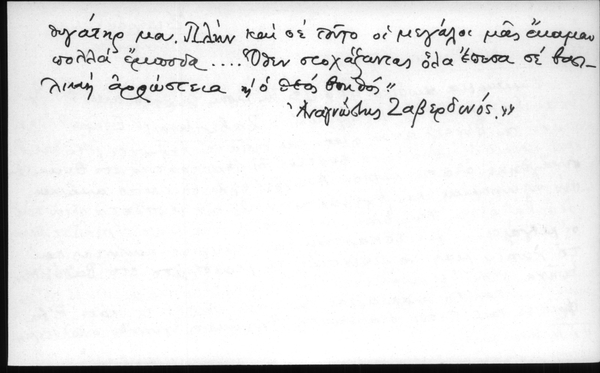 θυγάτηρ μα. Πλὴν καὶ σέ τοῦτο οἱ μεγάλοι μᾶς ἔκαμαν
πολλά ἔμποδα .... Ὅθεν στοχάζοντας ὅλα ἔπεσα σέ βασι-
λικήν ἀρρώστεια ὁ θεός βοηθός"
Ἀναγνώστης Ζαβερδινός.»